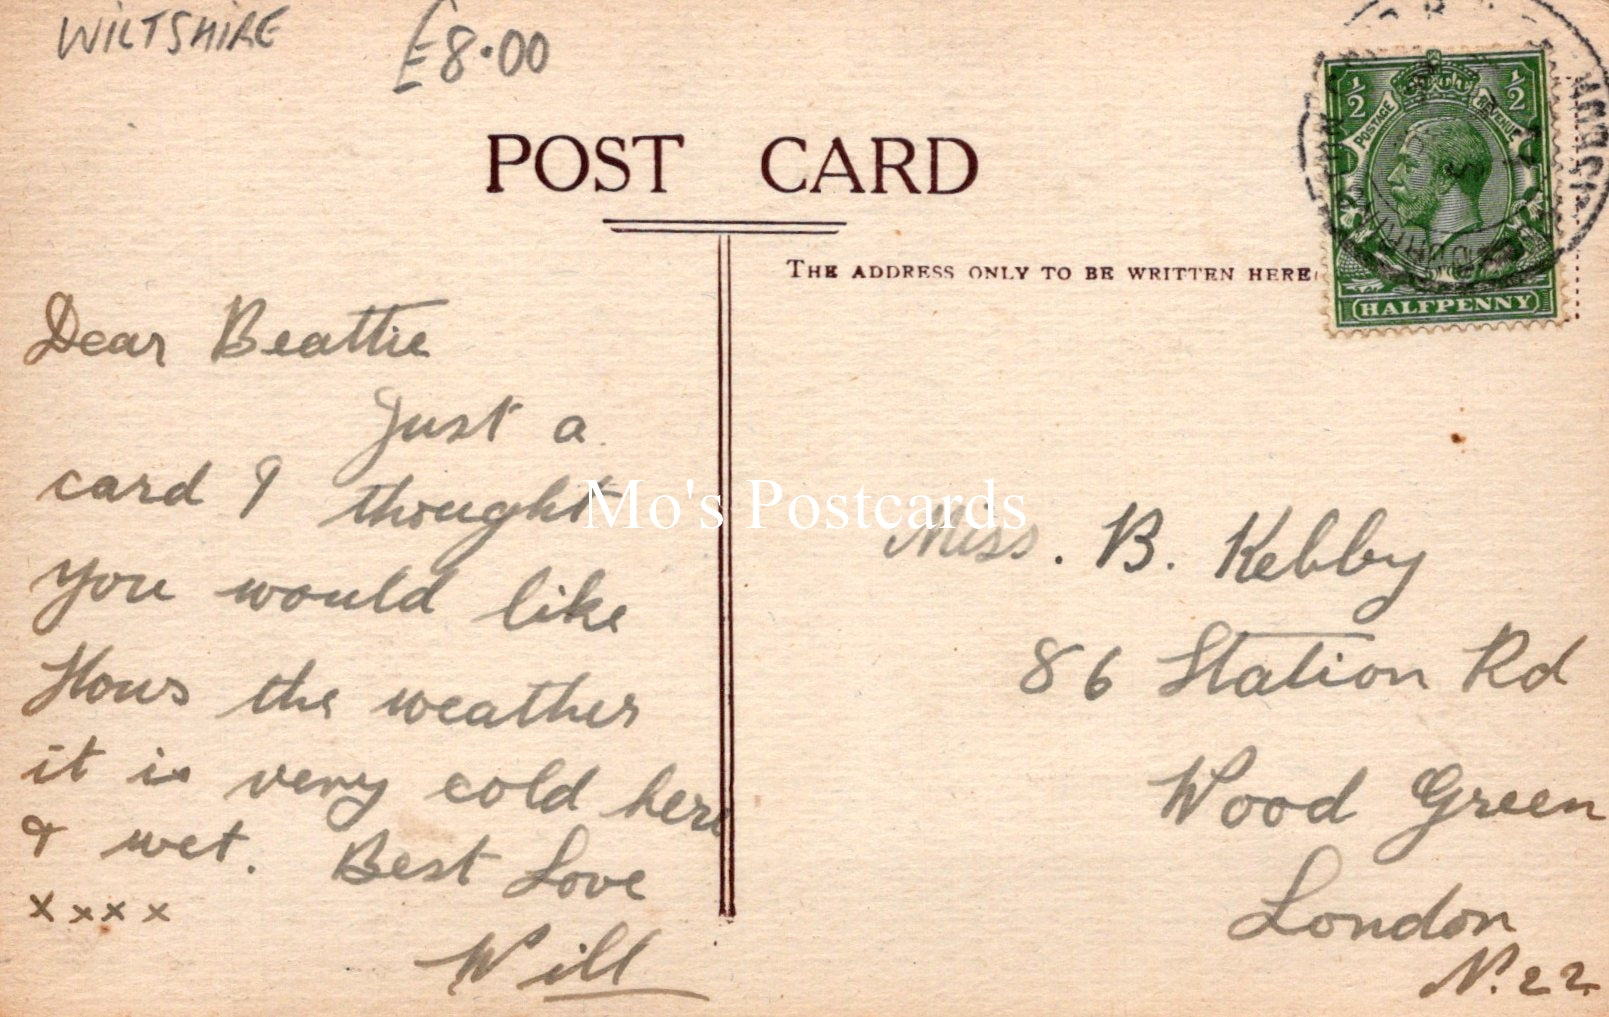 WILTSHIRE £8.00
POST CARD
THE ADDRESS ONLY TO BE WRITTEN HERE
½ ½
POSTAGE REVENUE
HALFPENNY
Dear Beattie
Just a
card I thought
you would like
Hows the weather
it is very cold here
& wet. Best Love
x x x x
Will
Mo's Postcards
Miss. B. Kebby
86 Station Rd
Wood Green
London
N.22